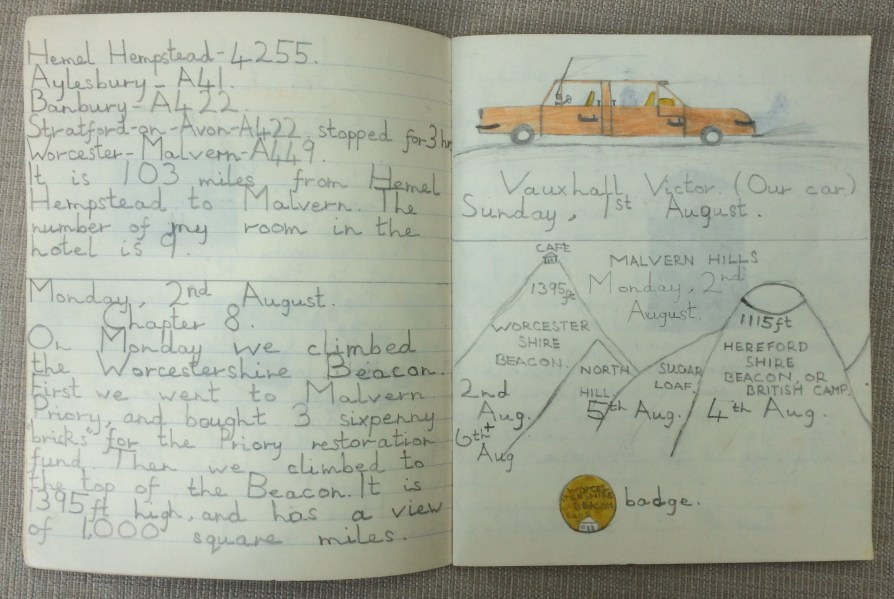 Hemel Hempstead-4255.
Aylesbury-A41.
Banbury-A422.
Stratford-on-Avon-A422 stopped for 3 hr
Worcester-Malvern-A449.
It is 103 miles from Hemel
Hempstead to Malvern. The
number of my room in the
hotel is 9.
Monday, 2nd August.
Chapter 8.
On Monday we climbed
the Worcestershire Beacon.
First we went to Malvern
Priory, and bought 3 sixpenny
"bricks" for the Priory restoration
fund. Then we climbed to
the top of the Beacon. It is
1395ft high, and has a view
of 1,000 square miles.
Vauxhall Victor. (Our car)
Sunday, 1st August.
CAFE
MALVERN HILLS
1395ft
Monday, 2nd
August.
WORCESTER
SHIRE
BEACON.
NORTH
HILL.
SUGAR
LOAF.
1115ft
HEREFORD
SHIRE
BEACON, OR
BRITISH CAMP.
2nd
Aug.
6th+
Aug
5th Aug.
4th Aug.
WORCES
TERSHIRE
BEACON
badge.